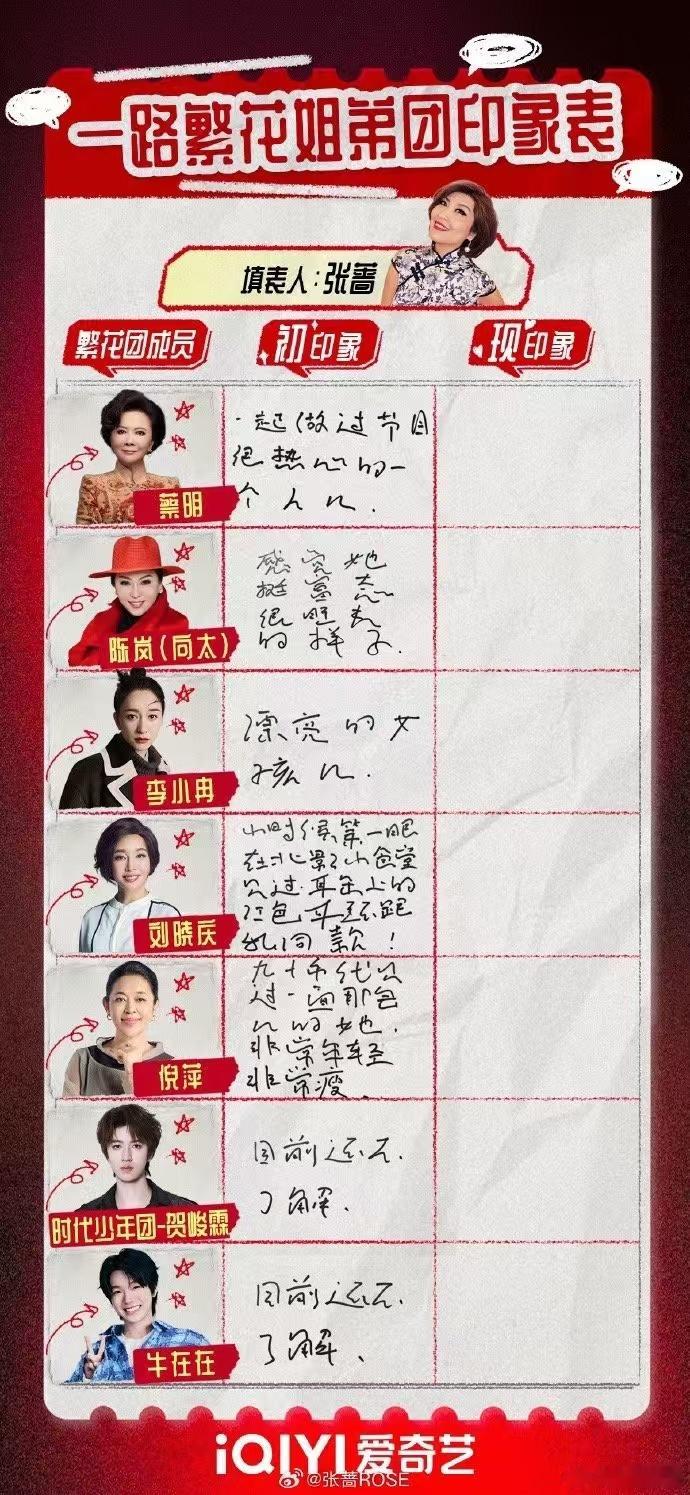 一路繁花姐弟团印象表
填表人:张蔷
繁花团成员
初印象
现印象
一起做过节目
很热心的一
个人儿.
蔡明
感觉她
挺富态
很明表
的样子.
陈岚(向太)
漂亮的女
孩儿.
李小冉
小时候第一眼
在北影小食堂
红色
款!
刘晓庆
九十年代见
过一面那会
儿的她.
非常年轻
非常瘦.
倪萍
目前还不.
了解.
时代少年团-贺峻霖
目前还不.
了解.
牛在在
iQIYI 爱奇艺
@张蔷ROSE